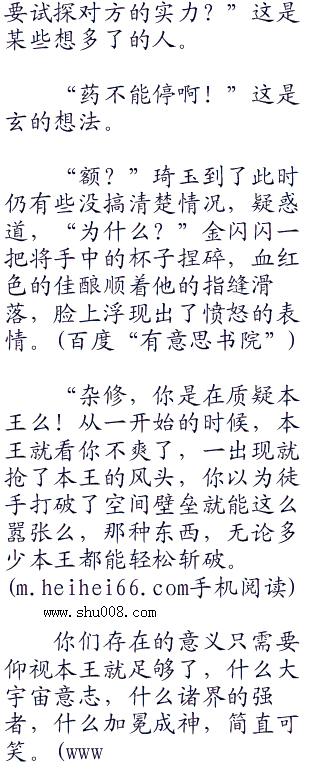 要试探对方的实力？”这是
某些想多了的人。
“药不能停啊！”这是
玄的想法。
“额？”琦玉到了此时
仍有些没搞清楚情况，疑惑
道，“为什么？”金闪闪一
把将手中的杯子捏碎，血红
色的佳酿顺着他的指缝滑
落，脸上浮现出了愤怒的表
情。(百度“有意思书院”)
“杂修，你是在质疑本
王么！从一开始的时候，本
王就看你不爽了，一出现就
抢了本王的风头，你以为徒
手打破了空间壁垒就能这么
嚣张么，那种东西，无论多
少本王都能轻松斩破。
(m.heihei66.com手机阅读)
www.shu008.com
你们存在的意义只需要
仰视本王就足够了，什么大
宇宙意志，什么诸界的强
者，什么加冕成神，简直可
笑。(www